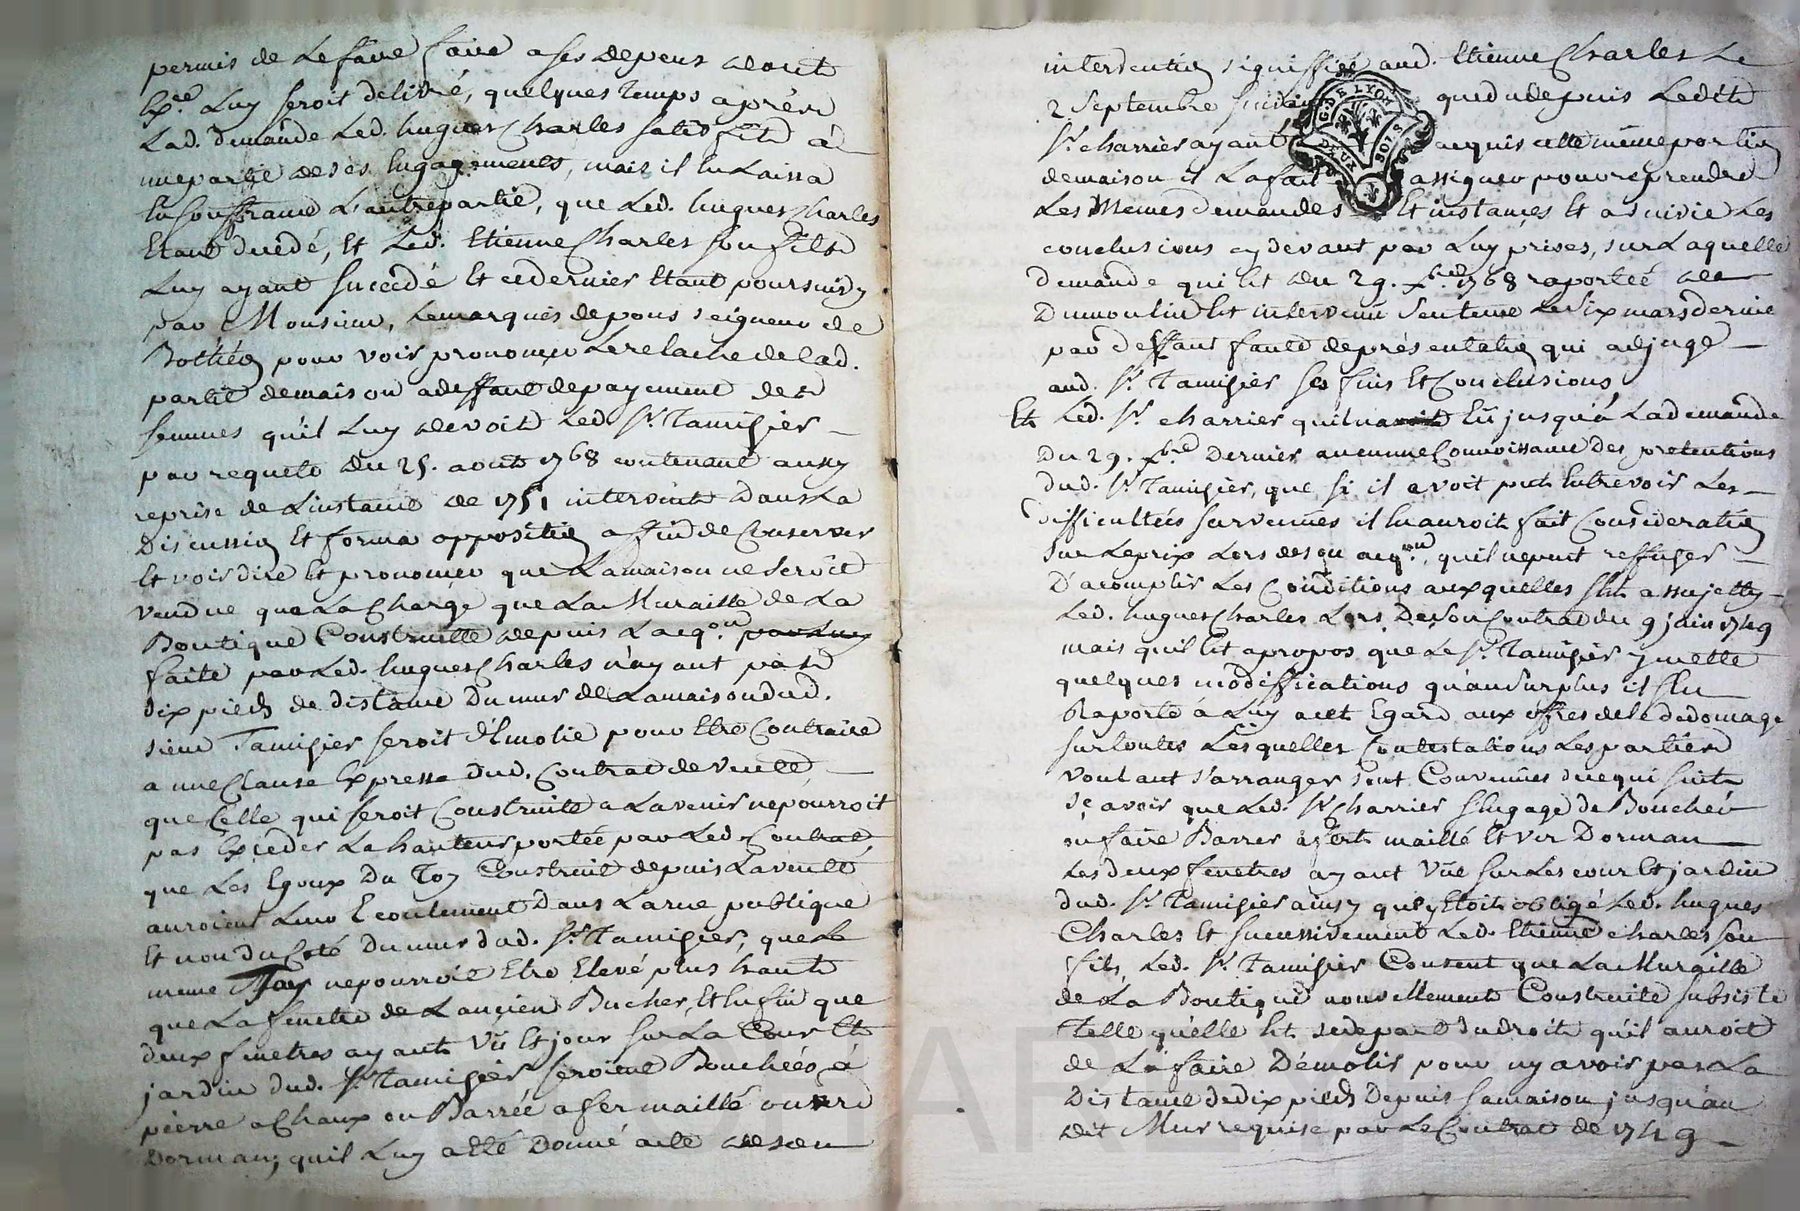 permis de le faire faire a ses depens dont
Exre luy seroit delivré, quelques temps aprés
Lad. demande Led. hugues Charles satisfit à
une partie de ses Engagements, mais il en Laissa
En souffrance L'autre partie, que Led. hugues Charles
Etant decedé, Et Led. Etienne Charles son fils
Luy ayant succedé Et ce dernier Etant poursuivy
par Monsieur, Lemarquis de pons seigneur de
Bothéon pour voir prononcer Le relache de lad.
partie demaison adeffaut depayement des
sommes qu'il Luy devoit Led. Sr. Tamisier
par requete du 25. aout 1768 contenant aussy
reprise de L'instance de 1751 intervint Dans La
Discussion Et forma opposition affin de Conserver
Et voir dire Et prononcer que La maison ne seroit
vendue qu'a La Charge que La Muraille de La
Boutique Construitte depuis L'acqon par Luy
faite par Led. hugues Charles n'ayant pas
dix pieds de distance Du mur de La maison dud.
sieur Tamisier seroit démolie pour Etre Contraire
a une Clause Expresse dud. Contrat de vente,
que Celle qui seroit Construite a L'avenir ne pourroit
pas Exceder La hauteur portée par Led. Contrat,
que Les Egoux Du Toy Construit depuis La vente
auroient Leur Ecoulement Dans La rue publique
Et non du Coté Du mur dud. Sr. Tamisier, que Le
meme Toy ne pourroit Etre Elevé plus haut
que La fenetre de L'ancien Bucher, Et Enfin que
deux fenetres ayant Vüe Et jour sur La Cour Et
jardin dud. Sr. Tamisier seroient Bouchées à
pierre a Chaux ou Barrée a fer maillé ou
Dorman, qu'il Luy a été Donné acte de son
intervention signiffiée aud. Etienne Charles Le
2 Septembre suivant que du depuis Ledit
Sr. charrier ayant acquis cette même portion
demaison il La fait assigner pour reprendre
Les Memes demandes Et instances Et a suivie Les
conclusions cy devant par Luy prises, sur Laquelle
demande qui Est du 29. xbre 1768 raportée de
Dumoulin Est intervenu Sentence Le Six mars dernier
par deffaut faute de présentation qui adjuge
aud. Sr. Tamisier ses fins Et Conclusions
Et Led. Sr. charrier qu'il n'a Eü jusqu'à La demande
Du 29. xbre Dernier aucune Connoissance Des pretentions
dud. Sr. Tamisier, que si il avoit peut Entrevoir Les
Difficultées survenües il En auroit fait Consideration
sur Le prix Lors de son acqon, qu'il ne peut reffuser
D'acomplir Les Conditions auxquelles s'Est assujetty
Led. hugues Charles Lors De son Contrat du 9 juin 1749
mais qu'il Est apropos que Le Sr. Tamisier y mette
quelques modiffications qu'au surplus il s'En
Raporte a Luy a cet Egard aux offres de le dedomager
sur toutes Lesquelles Contestations Les parties
voulant s'arranger sont Convenües de ce qui suit
Sçavoir que Led. Sr. Charrier s'Engage de Boucher
ou faire Barrer a fert maillé Et ver Dorman
Les deux fenetres ayant Vüe sur Les cour Et jardin
dud. Sr. Tamisier ainsy qu'y Etoit obligé Led. hugues
Charles Et successivement Led. Etienne charles son
fils, Led. Sr. Tamisier Consent que La Muraille
de La Boutique nouvellement Construite subsiste
Telle qu'elle Est se depart du droit qu'il auroit
de La faire Démolir pour n'y avoir pas La
Distance de dix pieds Depuis sa maison jusqu'au
dit Mur requise par Le Contrat de 1749
G. DE LYON
DEUX SOLS